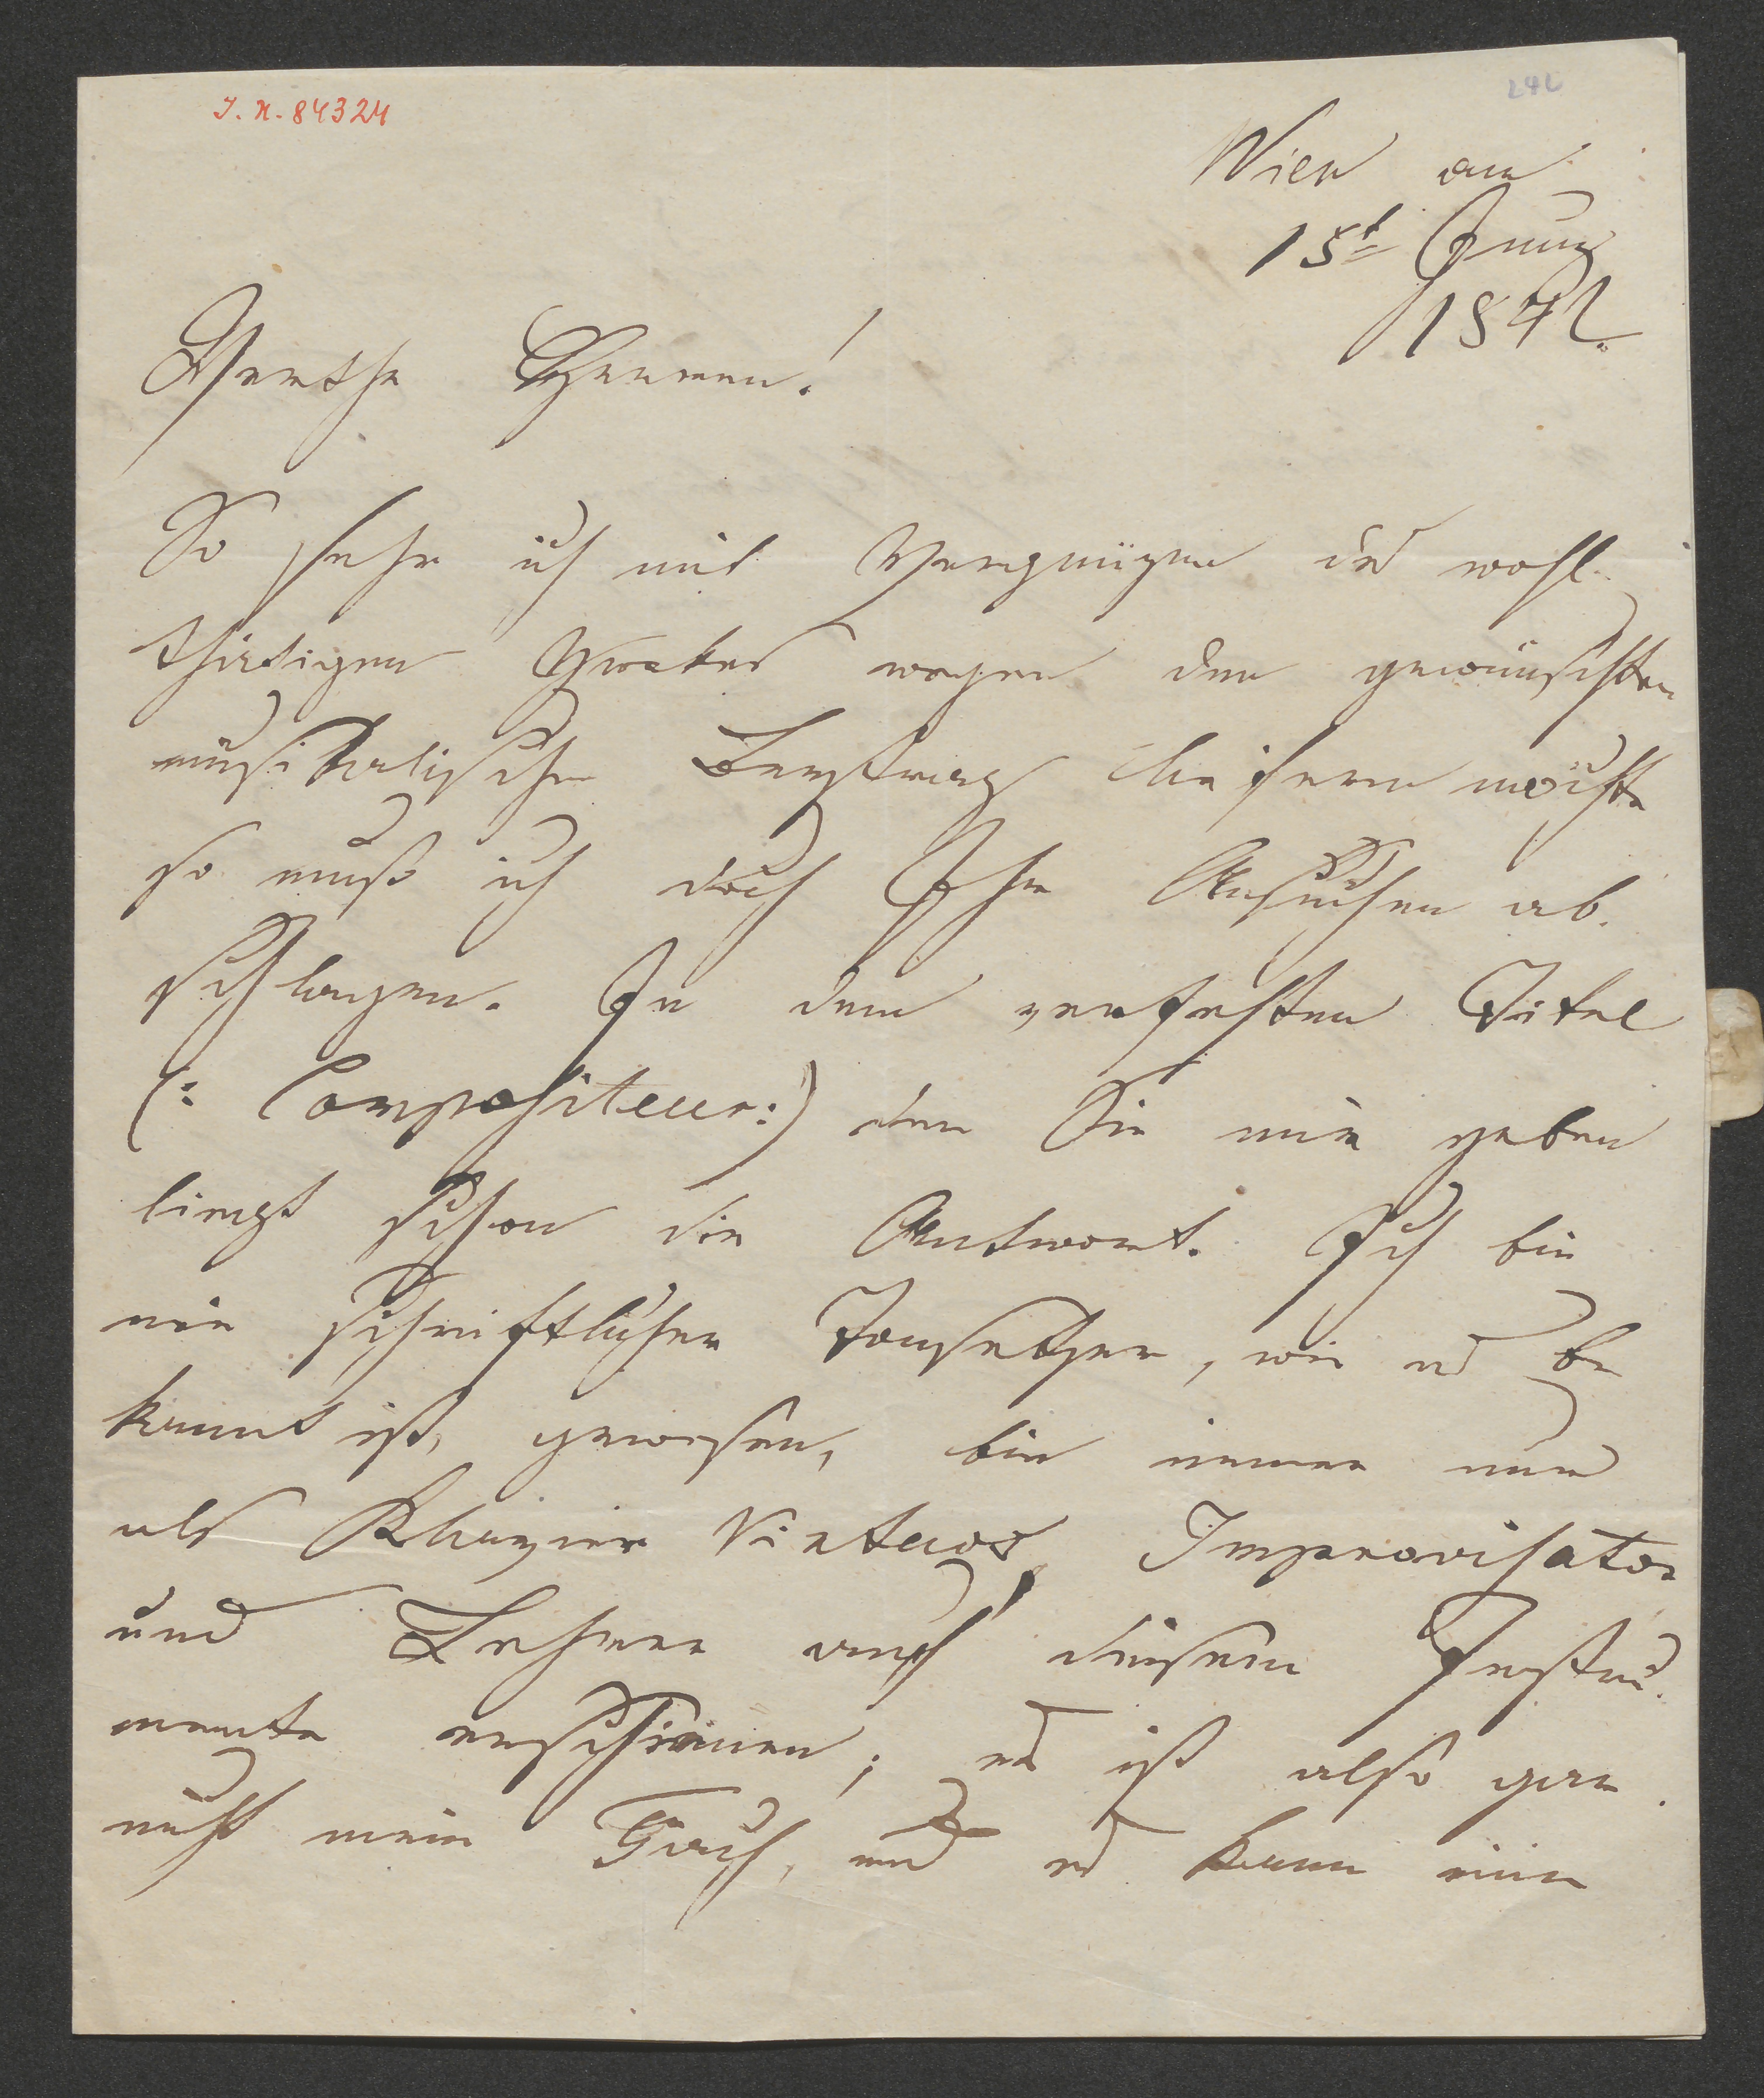 J. N. 84324
242
Wien am
15t Juny
1842.
Werthe Herren!
So sehr ich mit Vergnügen des wohl-
thätigen Zweckes wegen den gewünschten
musikalischen Beytrag liefern möchte
so muß ich doch Ihr Ansuchen ab-
schlagen. In dem verfehlten Titel
(: Compositeur :) den Sie mir geben
liegt schon die Antwort. Ich bin
nie schriftlicher Tonsetzer, wie es be
kannt ist, gewesen, bin immer nur
als Klavier Virtuos, Improvisator
und Lehrer auf diesem Instru-
mente erschienen; es ist also gar
nicht mein Fach, und es kann mir